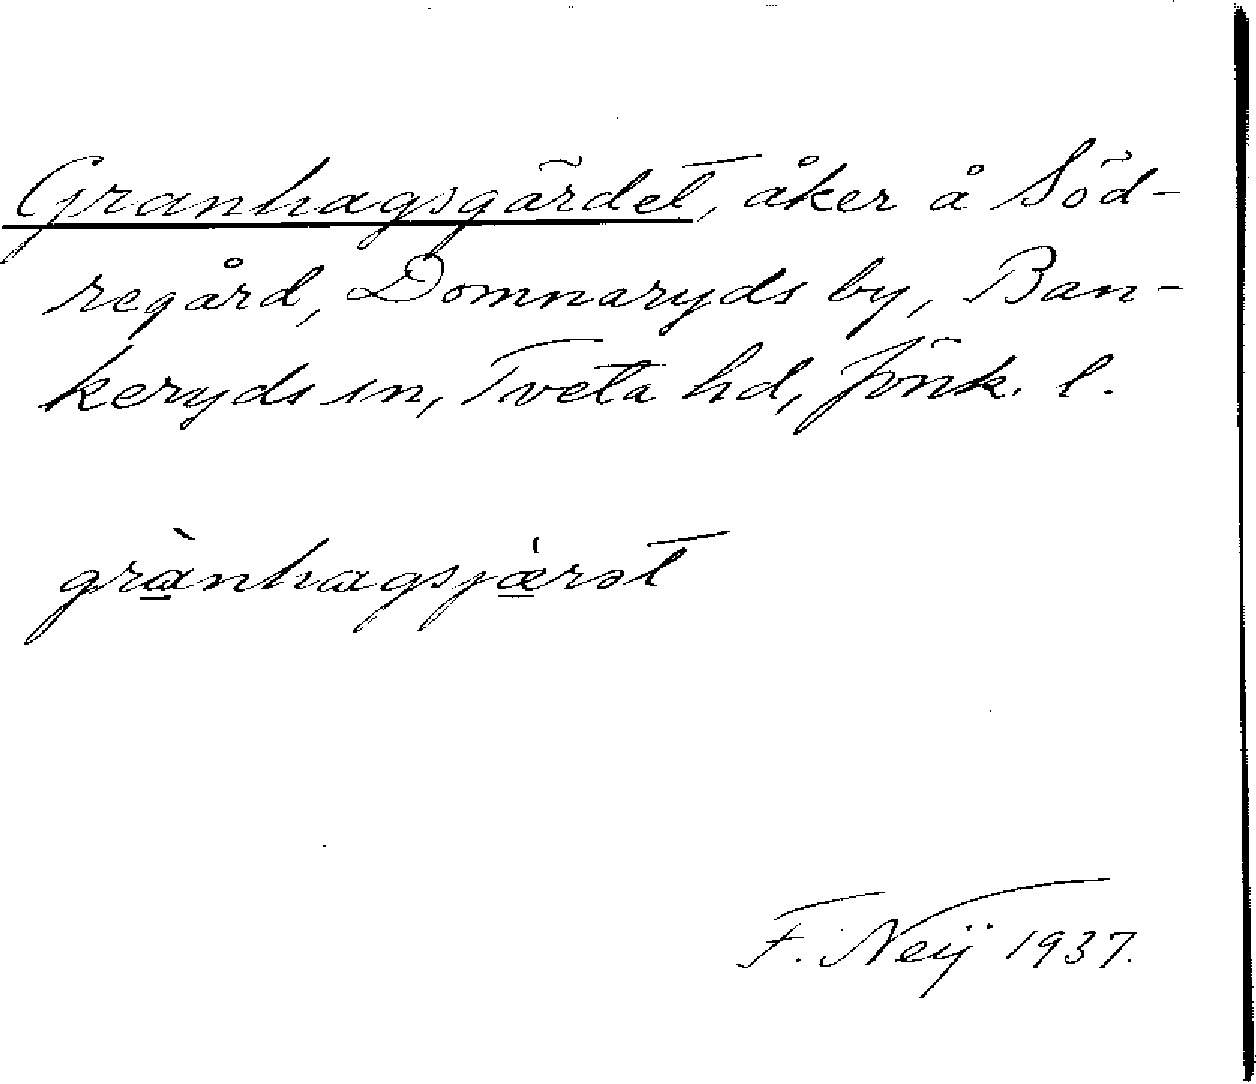 Granhagsgärdet, åker å Söd-
regård, Domnaryds by, Ban-
keryds sn, Tveta hd, Jönk. l.
grànhagsjæ̍rət
F. Neij 1937.